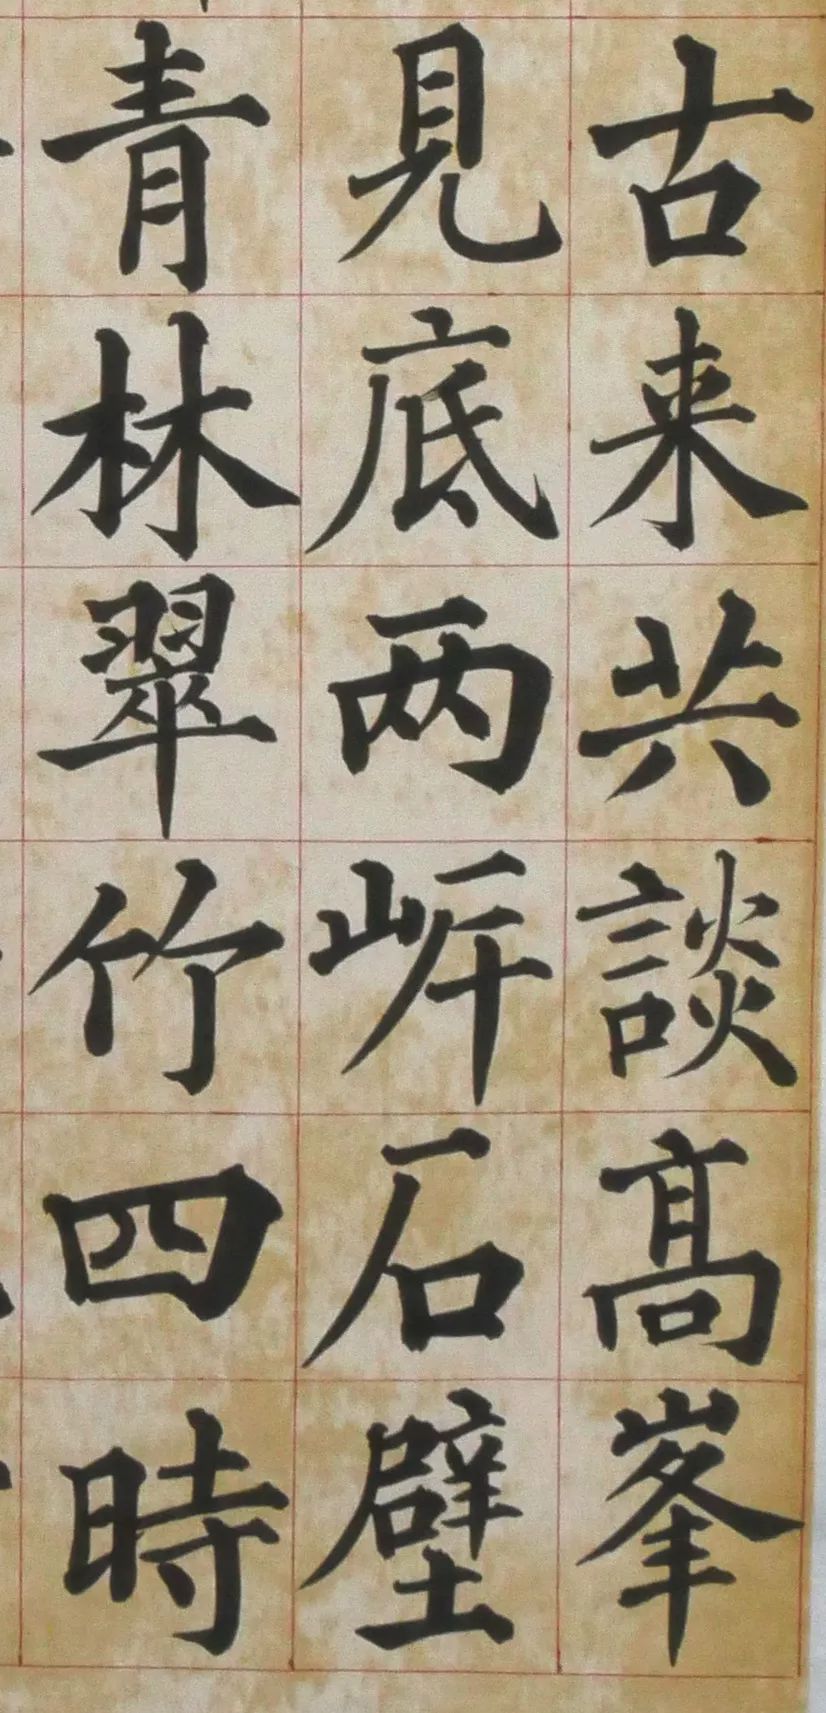 古来共談高峯
見底两岓石壁
青林翠竹四時